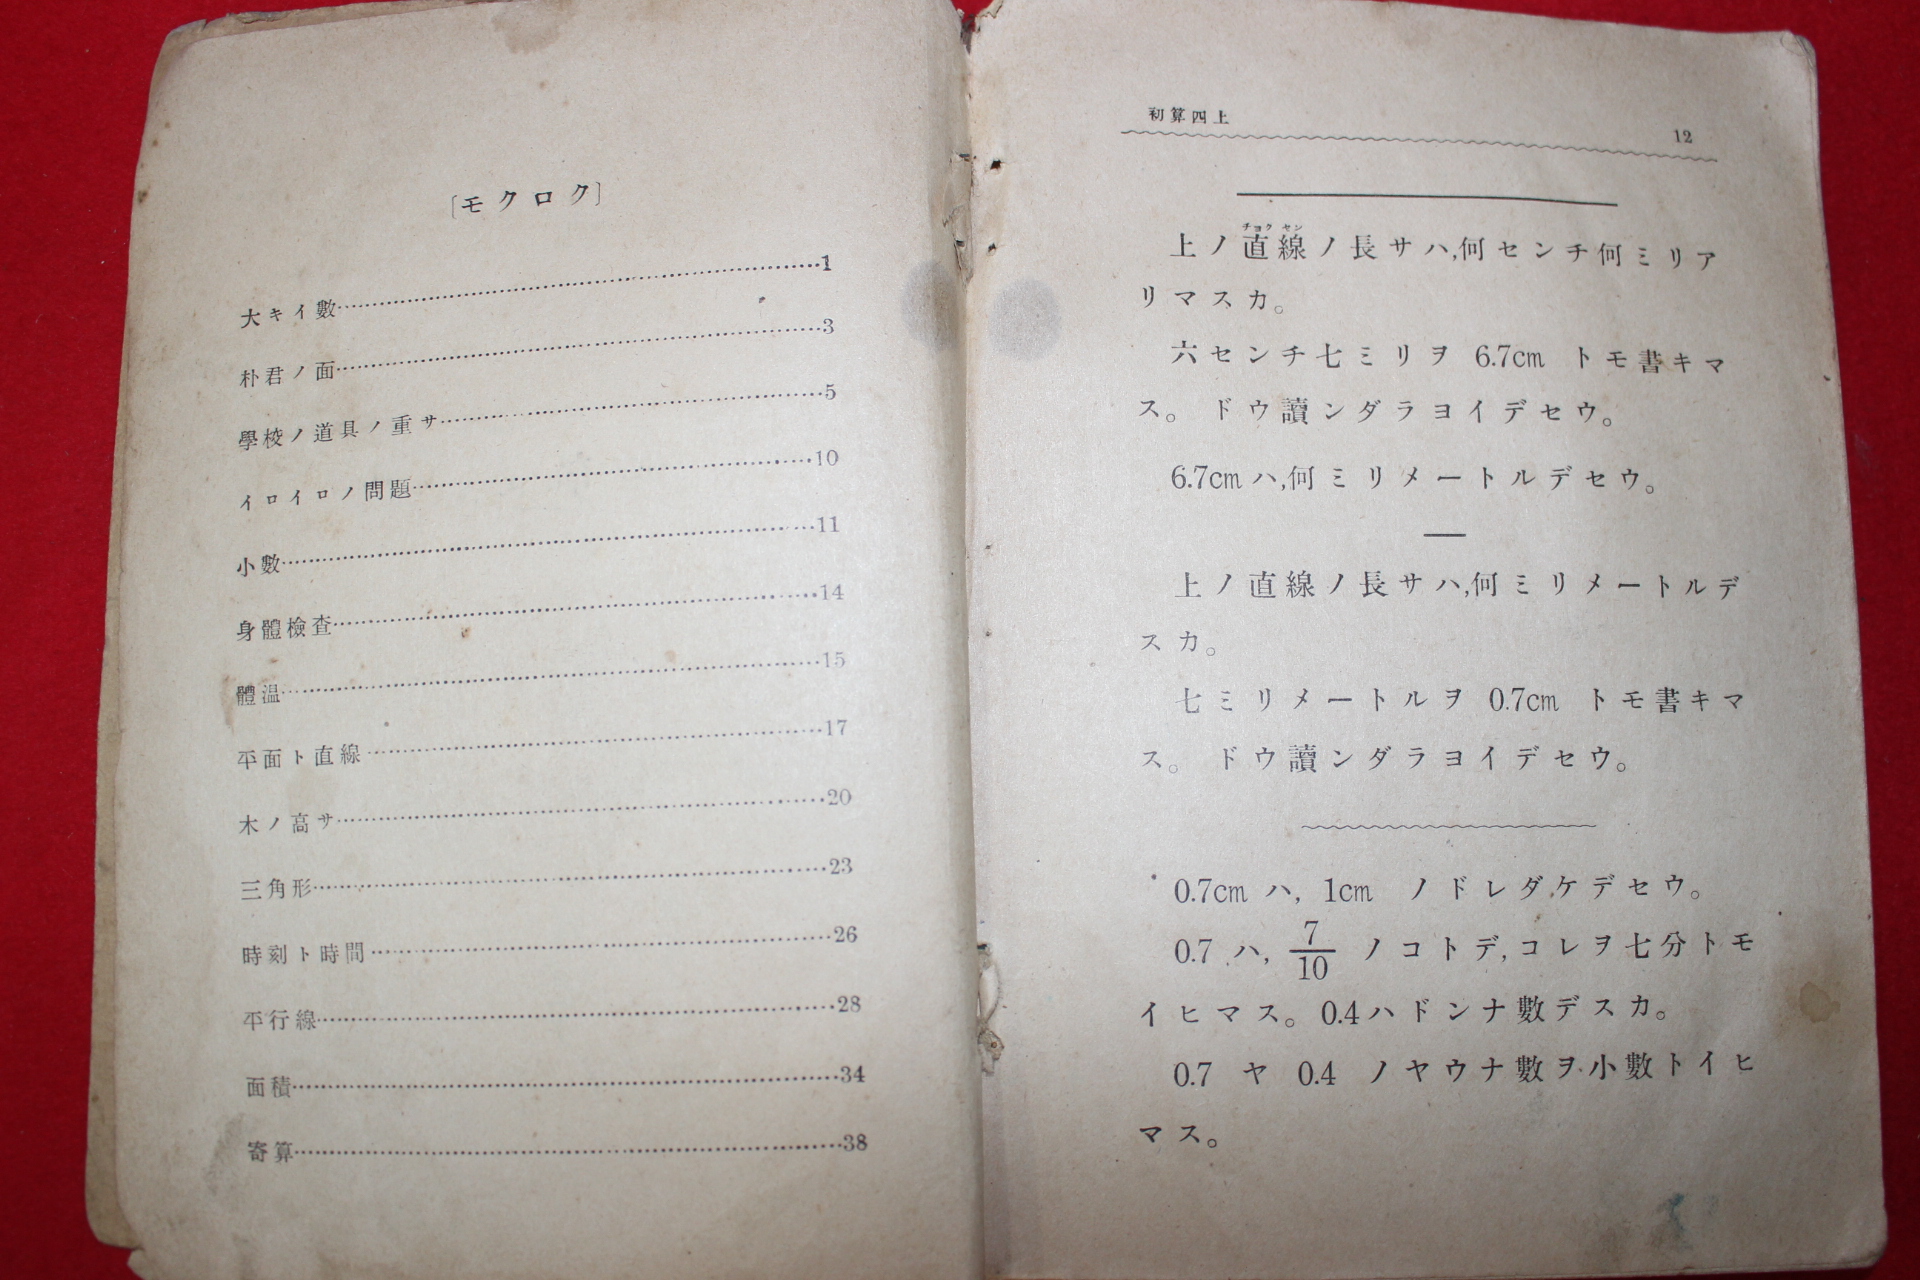 [モクロク]
大キイ數……1
朴君ノ面……3
學校ノ道具ノ重サ……5
イロイロノ問題……10
小數……11
身體檢査……14
體温……15
平面ト直線……17
木ノ高サ……20
三角形……23
時刻ト時間……26
平行線……28
面積……34
寄算……38
初算四上 12
チョク セン
上ノ直線ノ長サハ,何センチ何ミリア
リマスカ。
六センチ七ミリヲ 6.7cm トモ書キマ
ス。 ドウ讀ンダラヨイデセウ。
6.7cm ハ,何ミリメートルデセウ。
上ノ直線ノ長サハ,何ミリメートルデ
スカ。
七ミリメートルヲ 0.7cm トモ書キマ
ス。 ドウ讀ンダラヨイデセウ。
0.7cm ハ, 1cm ノドレダケデセウ。
0.7 ハ, 7/10 ノコトデ,コレヲ七分トモ
イヒマス。0.4ハドンナ數デスカ。
0.7 ヤ 0.4 ノヤウナ數ヲ小數トイヒ
マス。